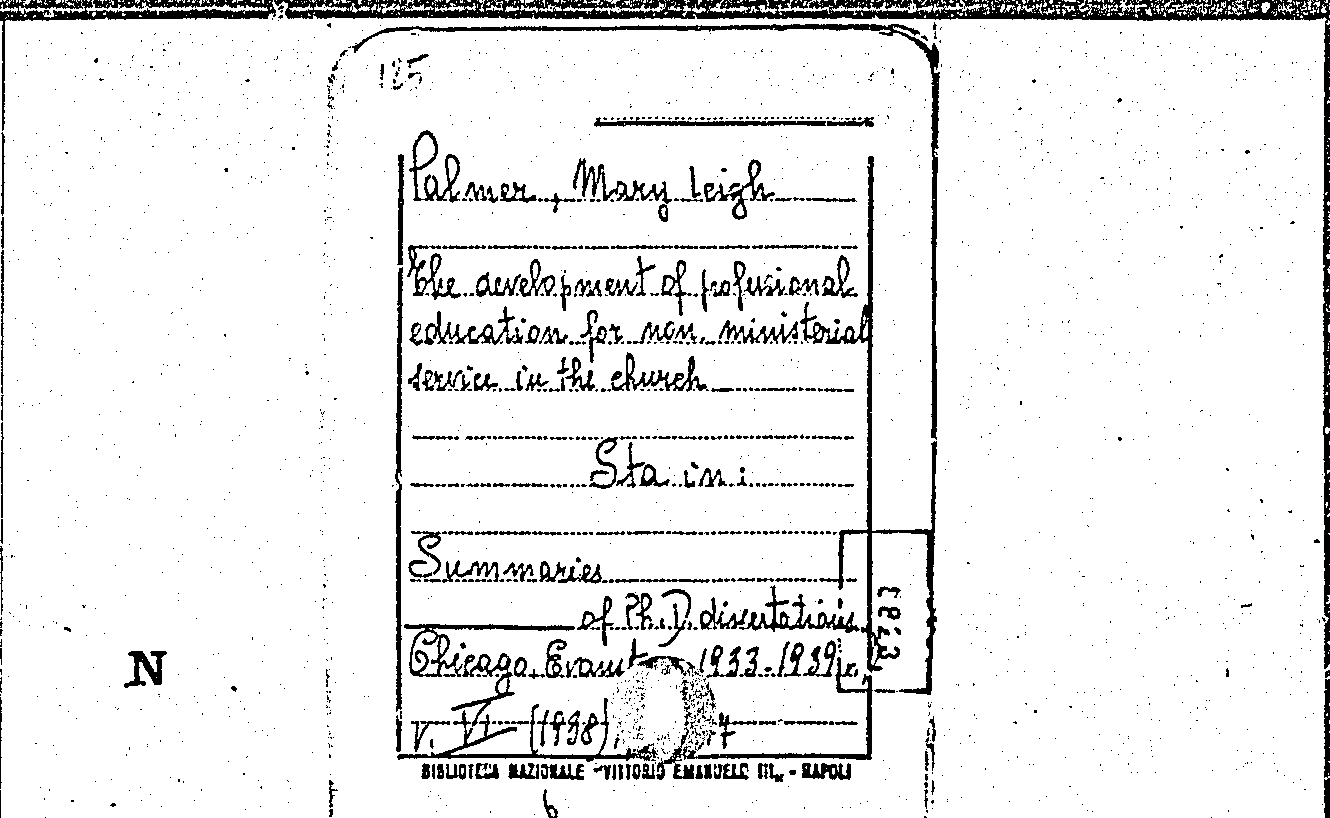 125
Palmer, Mary Leigh
The development of profusional
education for non ministerial
service in the church
Sta in:
Summaries
of Ph. D. dissertations
Chicago, Evanst 1933-1939
v. VI (1938), 7
N
BIBLIOTECA NAZIONALE "VITTORIO EMANUELE III" - NAPOLI
6